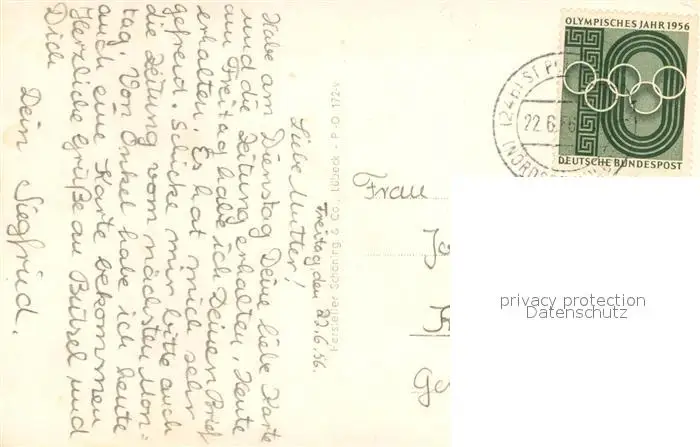 Freitag, den 22.6.56.
Liebe Mutter!
Habe am Dienstag Deine liebe Karte
und die Zeitung erhalten. Heute
am Freitag habe ich Deinen Brief
erhalten. Es hat mich sehr
gefreut. Schicke mir bitte auch
die Zeitung vom nächsten Mon=
tag. Von Onkel habe ich heute
auch eine Karte bekommen
Herzliche Grüße an Bützel und
Dich
Dein Siegfried.
Hersteller Schöning & Co., Lübeck - P.O. 172
OLYMPISCHES JAHR 1956
DEUTSCHE BUNDESPOST
(24b) ST. P
22.6.56
(NORDSEE
Frau
privacy protection
Datenschutz